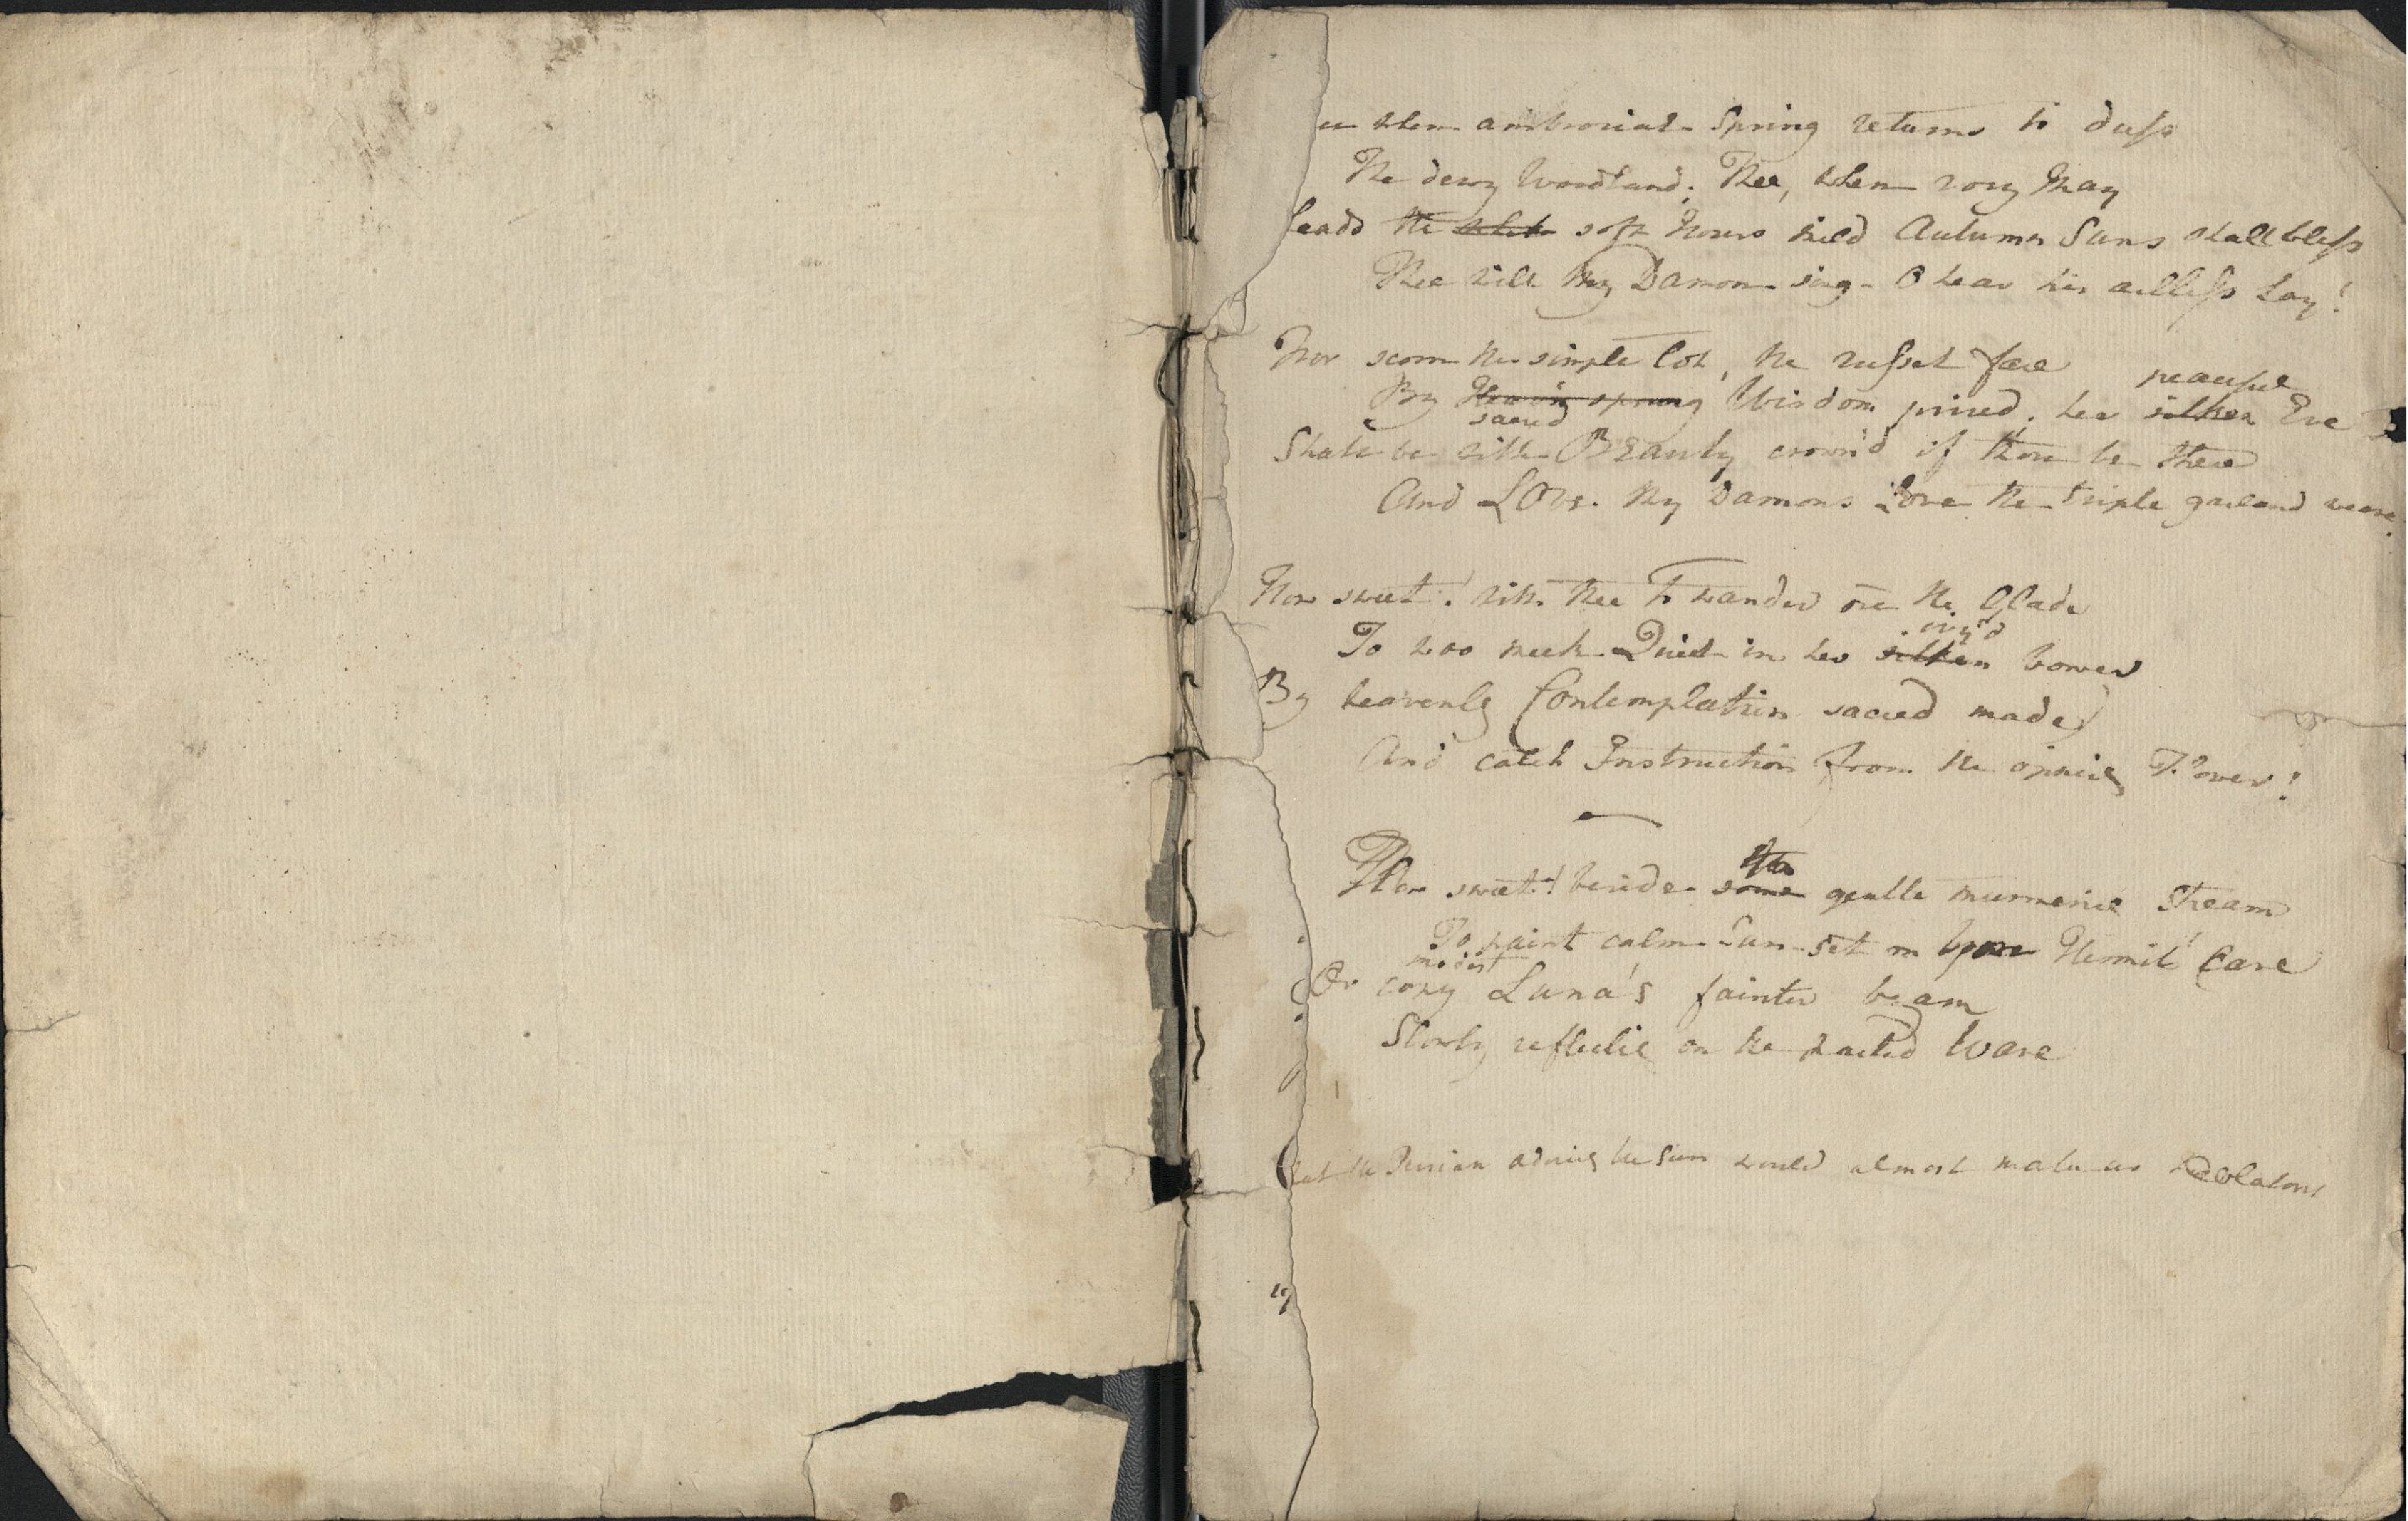 when ambrosial Spring returns to dress
The dewy Woodland; Thee, when rosy May
Leads the soft Hours mild Autumn Suns shall bless
Thee will thy Damon sing - O hear his artless Lay!
Nor scorn the simple Cot, the russet fare
peaceful
By Heav'n sprung Wisdom prized. her silken Eve
sacred
Shall be with BEauty crown'd if thou be there
And LOve. thy Damons Love the triple garland weave.
How sweet! with thee to wander o'er the Glade
ivy'd
To woo meek Quiet in her silken bower
By heavenly Contemplation sacred made
And catch Instruction from the opning Flower!
the
How sweet! beside some gentle murmuring Stream
To paint calm Sun-set on Hermit Cave
modest
Or coxy Luna's fainter beam
Slowly reflectig on the Wave
the Persian adoring the Sun would almost make us Idolators